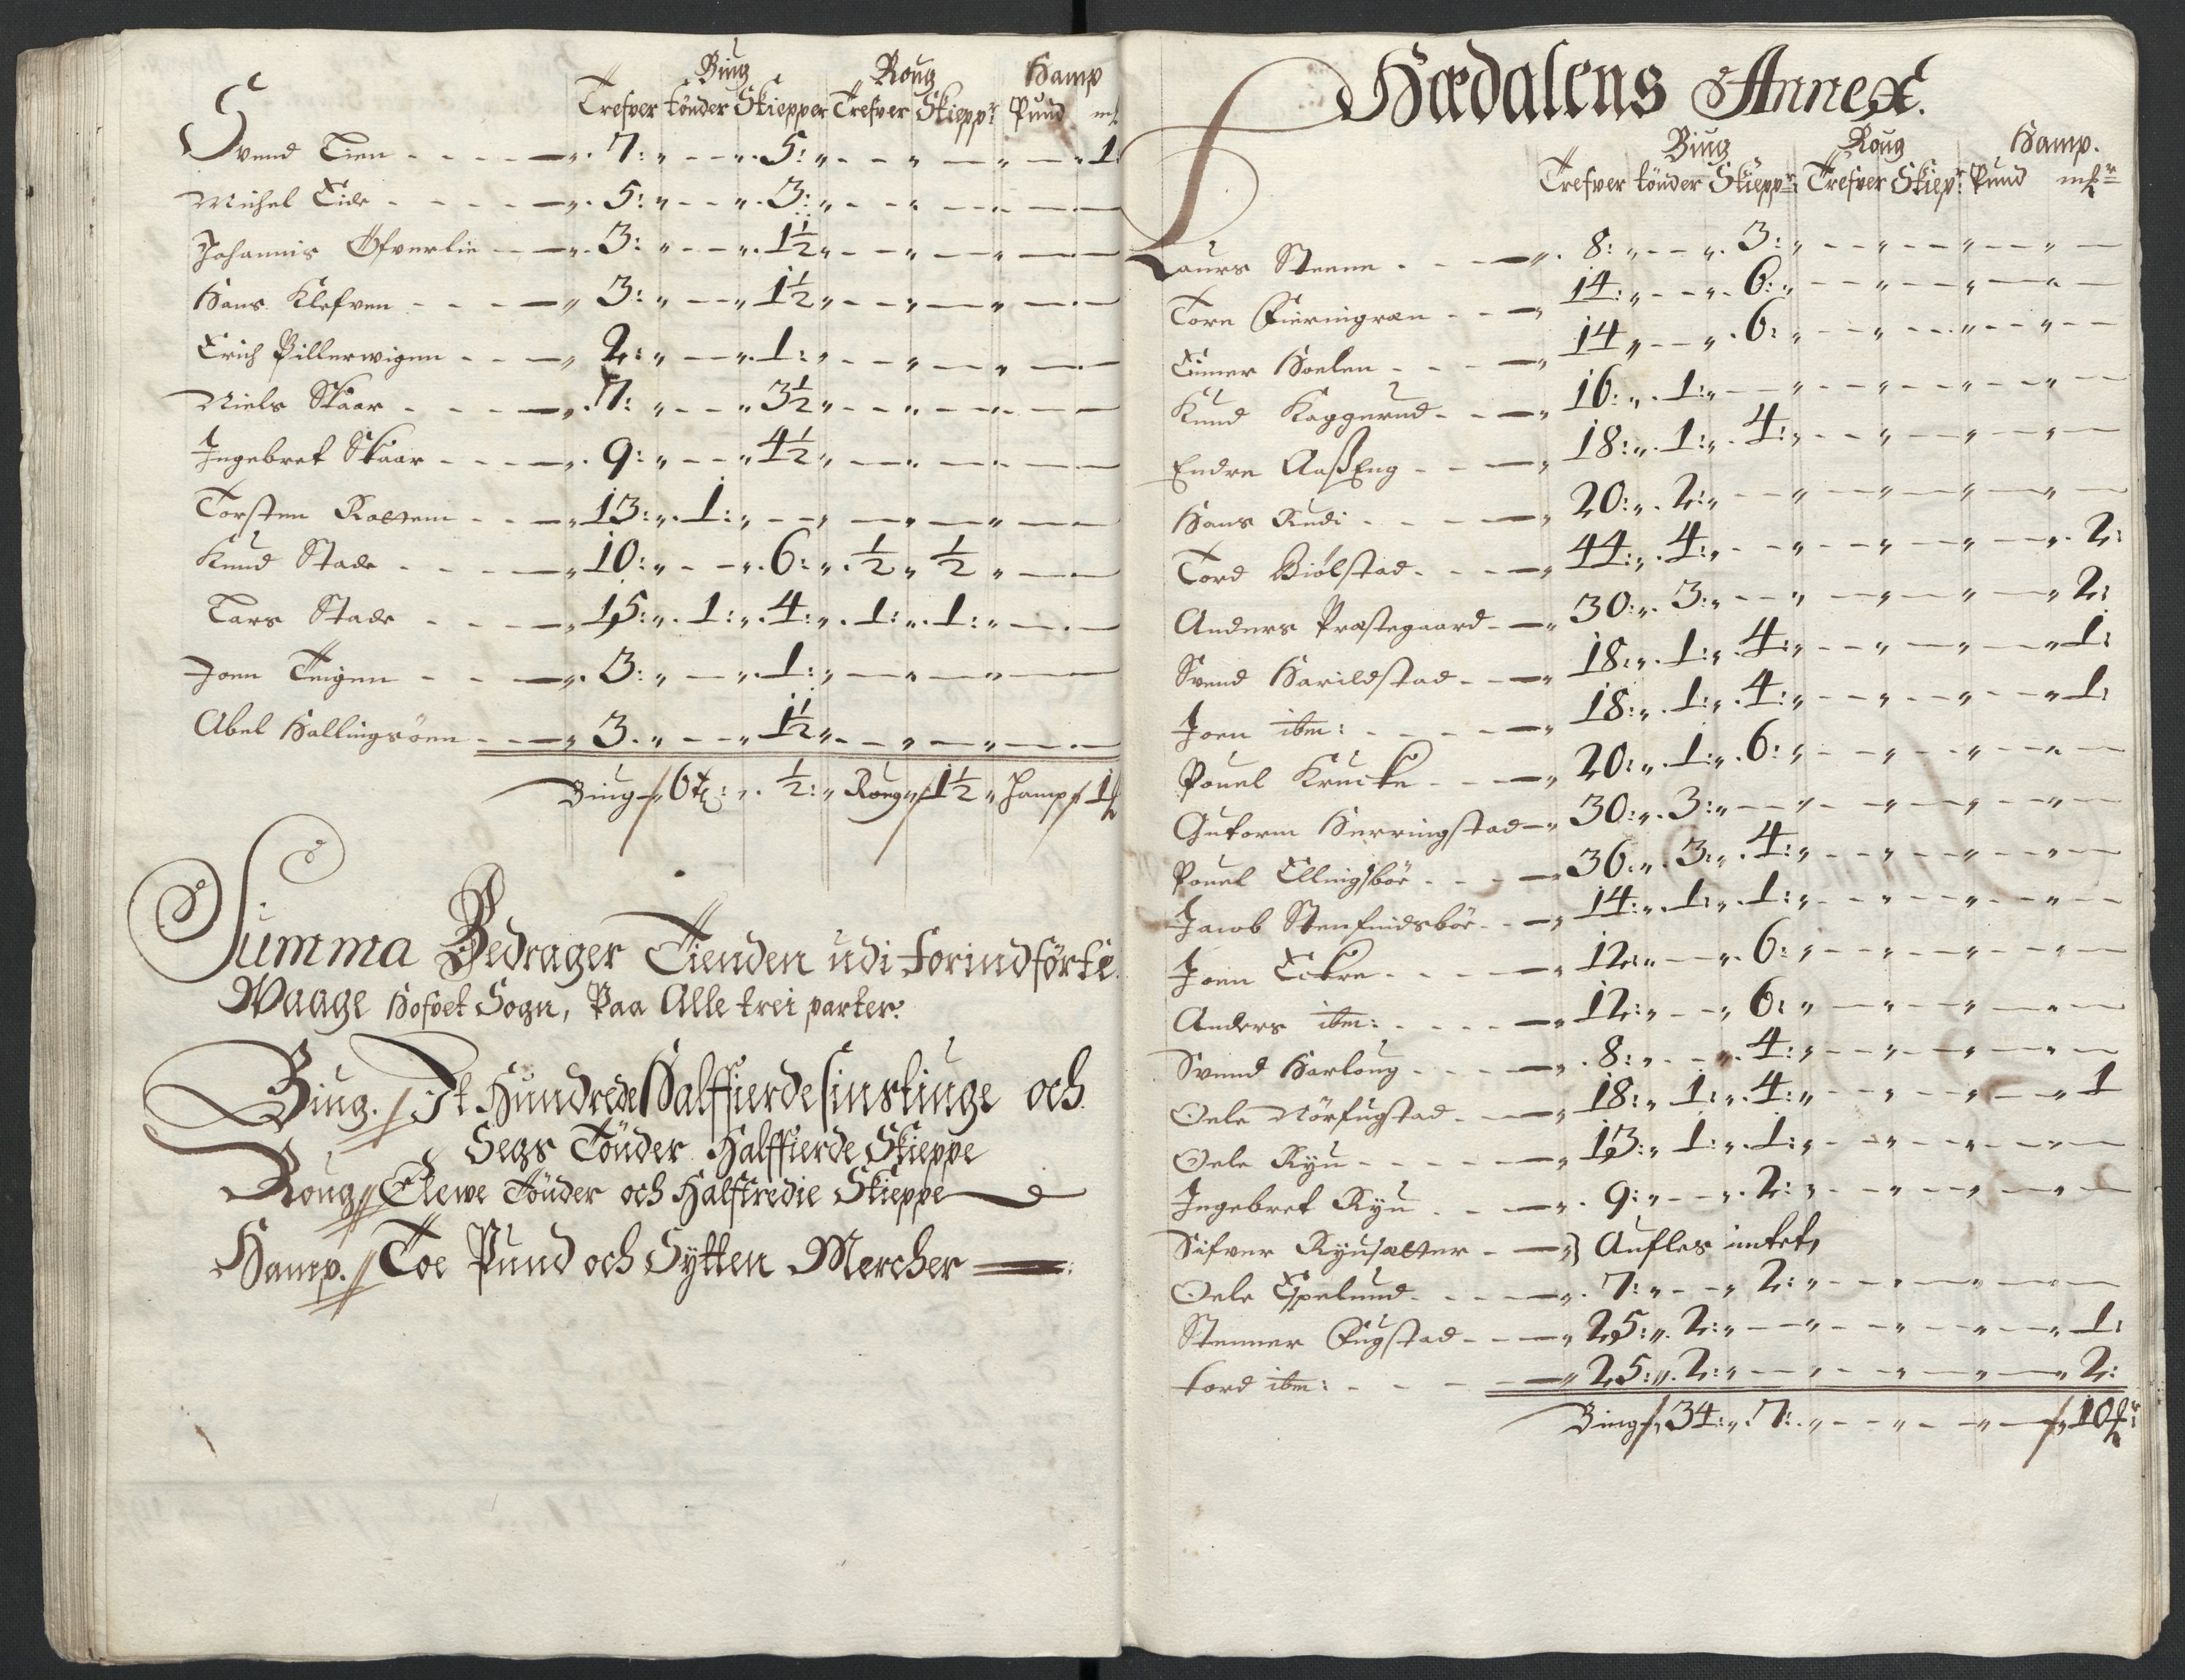 Biug Roug Hamp
Trefver tönder Skiepper Trefver Skiepp: Pund m:
Svend Tien 7: 5: 1:
Michel Eide 5: 3:
Johannis Øfverlie 3: 1½
Hans Klefven 3: 1½
Erich Pillerwigen 2: 1:
Niels Skaar 7: 3½
Ingebret Skaar 9: 4½
Torsten 13: 1:
Knud Stade 10: 6: ½ ½
Lars Stade 15: 1: 4: 1: 1:
Joen Teigen 3: 1:
Abel Hallingsöen 3. 1½
Biug 6 t: ½: Roug 1½ Hamp 1
Summa Bedrager Tienden udi Forindförte
Waage Hofvet Sogn, Paa Alle trei parter:
Biug. It Hundrede Halffierdesinstiuge och
Segs Tönder Halffierde Skieppe
Roug Elewe Tönder och Halftredie Skieppe
Hamp. Toe Pund och Sytten Mercher
Hædalens Annex.
Biug Roug Hamp.
Trefver tönder Skiepp: Trefver Skiep: Pund m:
Laurs Steene 8: 3:
Tore 14: 6:
Einer Hoelen 14 6:
Knud Kaggerud 16: 1:
Endre Aaß Eng 18: 1: 4:
Hans Rudi 20: 2:
Tord Biölstad 44: 4: 2:
Anders Præstegaard 30: 3: 2:
Svend Harildstad 18: 1: 4: 1:
Joen ibm: 18: 1: 4: 1:
Pouel Krucke 20: 1: 6:
Gutorm Herringstad 30: 3:
Pouel Ellingsböe 36: 3: 4:
Jacob Stenfindsböe 14: 1: 1:
Joen Eekre 12: 6:
Anders ibm: 12: 6:
Svend Harloug 8: 4:
Oele Nörfugstad 18: 1: 4: 1
Oele Ryu 13: 1: 1:
Ingebret Ryu 9: 2:
Sifver Ryusætter Aufles intet,
Oele Espelund 7: 2:
Stener Fugstad 25: 2: 1:
Tord ibm: 25: 2: 2:
Biug 34: 7: 10